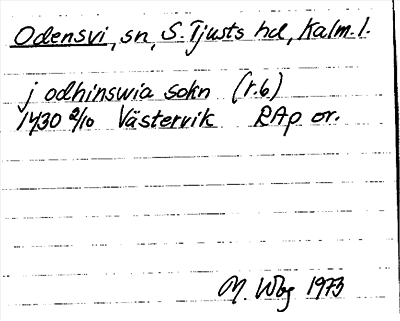 Odensvi, sn, S. Tjusts hd, Kalm. l.
j odhinswia sokn (r.6)
1430 2/10 Västervik RAp or.
M. Wbg 1973